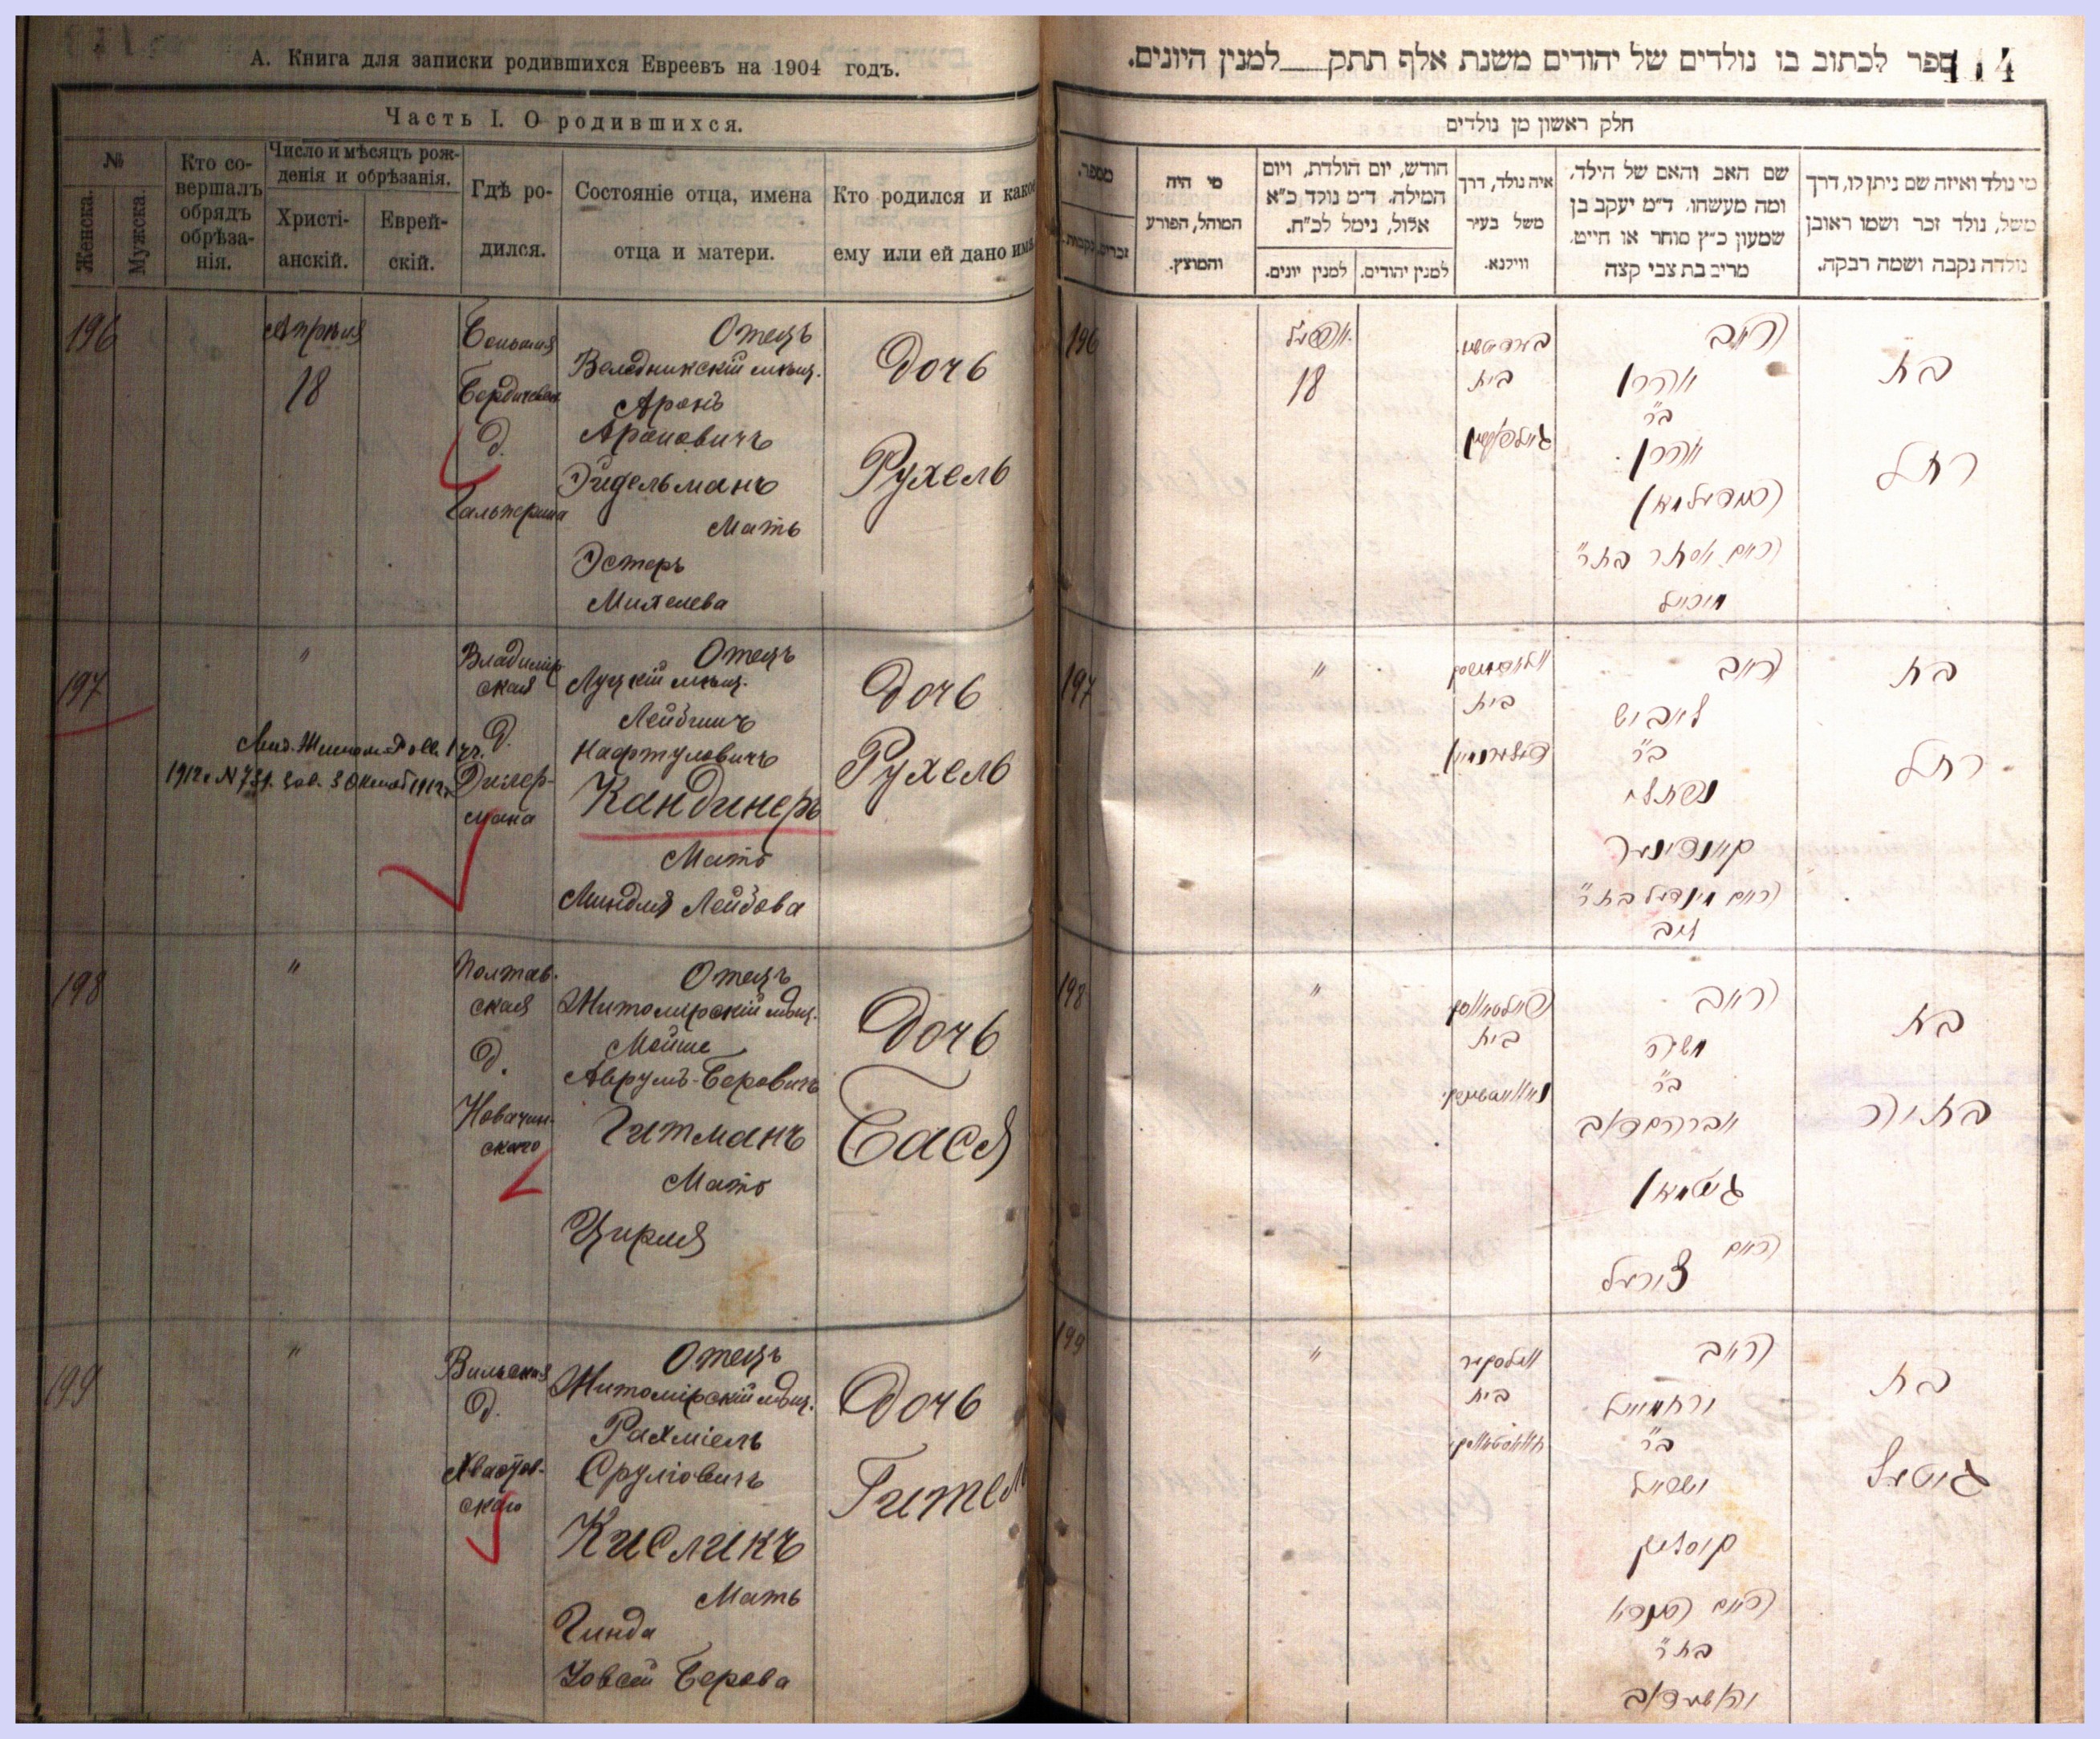 А. Книга для записки родившихся Евреевъ на 1904 годъ.
Часть I. О родившихся.
№
Женска.
Мужска.
Кто со-
вершалъ
обрядъ
обрѣза-
нія.
Число и мѣсяцъ рож-
денія и обрѣзанія.
Христі-
анскій.
Еврей-
скій.
Гдѣ ро-
дился.
Состояніе отца, имена
отца и матери.
Кто родился и какое
ему или ей дано имя.
196
Апрѣля
18
Большая
Бердичевск
д.
Гальперина
Отецъ
Веледникскій мѣщ.
Аронъ
Ароновичъ
Эйдельманъ
Мать
Эстеръ
Михелева
Дочь
Рухель
197
"
1912 г. N
Владимір
ская
д.
Дилер-
мана
Отецъ
Луцкій мѣщ.
Лейбишъ
Нафтуловичъ
Кандинеръ
Мать
Миндля Лейбова
Дочь
Рухель
198
"
Полтав-
ская
д.
Новачин-
скаго
Отецъ
Житомірскій мѣщ.
Мойше
Аврумъ-Беровичъ
Гитманъ
Мать
Цирля
Дочь
Бася
199
"
Вильская
д.
Хвастов-
скаго
Отецъ
Житомірскій мѣщ.
Рахміель
Сруліовичъ
Кисликъ
Мать
Гинда
Берова
Дочь
Гитель
ספר לכתוב בו נולדים של יהודים משנת אלף תתק למנין היונים.
114
חלק ראשון מן נולדים
מספר.
זכרים.
נקבות.
מי היה
המוהל, הפורע
והמוצץ.
חודש, יום הולדת, ויום
המילה. ד״מ נולד כ״א
אלול, נימל לכ״ח.
למנין יונים.
למנין יהודים.
איה נולד, דרך
משל בעיר
ווילנא.
שם האב והאם של הילד,
ומה מעשהו. ד״מ יעקב בן
שמעון כ״ץ סוחר או חייט.
מריב בת צבי קצה
מי נולד ואיזה שם ניתן לו, דרך
משל, נולד זכר ושמו ראובן
נולדה נקבה ושמה רבקה.
196
אפריל
18
בית
גאלפערין
האב
אהרן
ב״ר
אהרן
האם אסתר בת ר״
מיכאל
בת
רחל
197
"
בית
האב
לייביש
ב״ר
נפתלי
קאנדינער
האם מינדיל בת ר״
ליב
בת
רחל
198
"
בית
האב
משה
ב״ר
גיטמאן
האם
צירעל
בת
בתיה
199
"
בית
האב
ירחמיאל
ב״ר
קיסליק
האם
בת ר״
בת
גיטעל